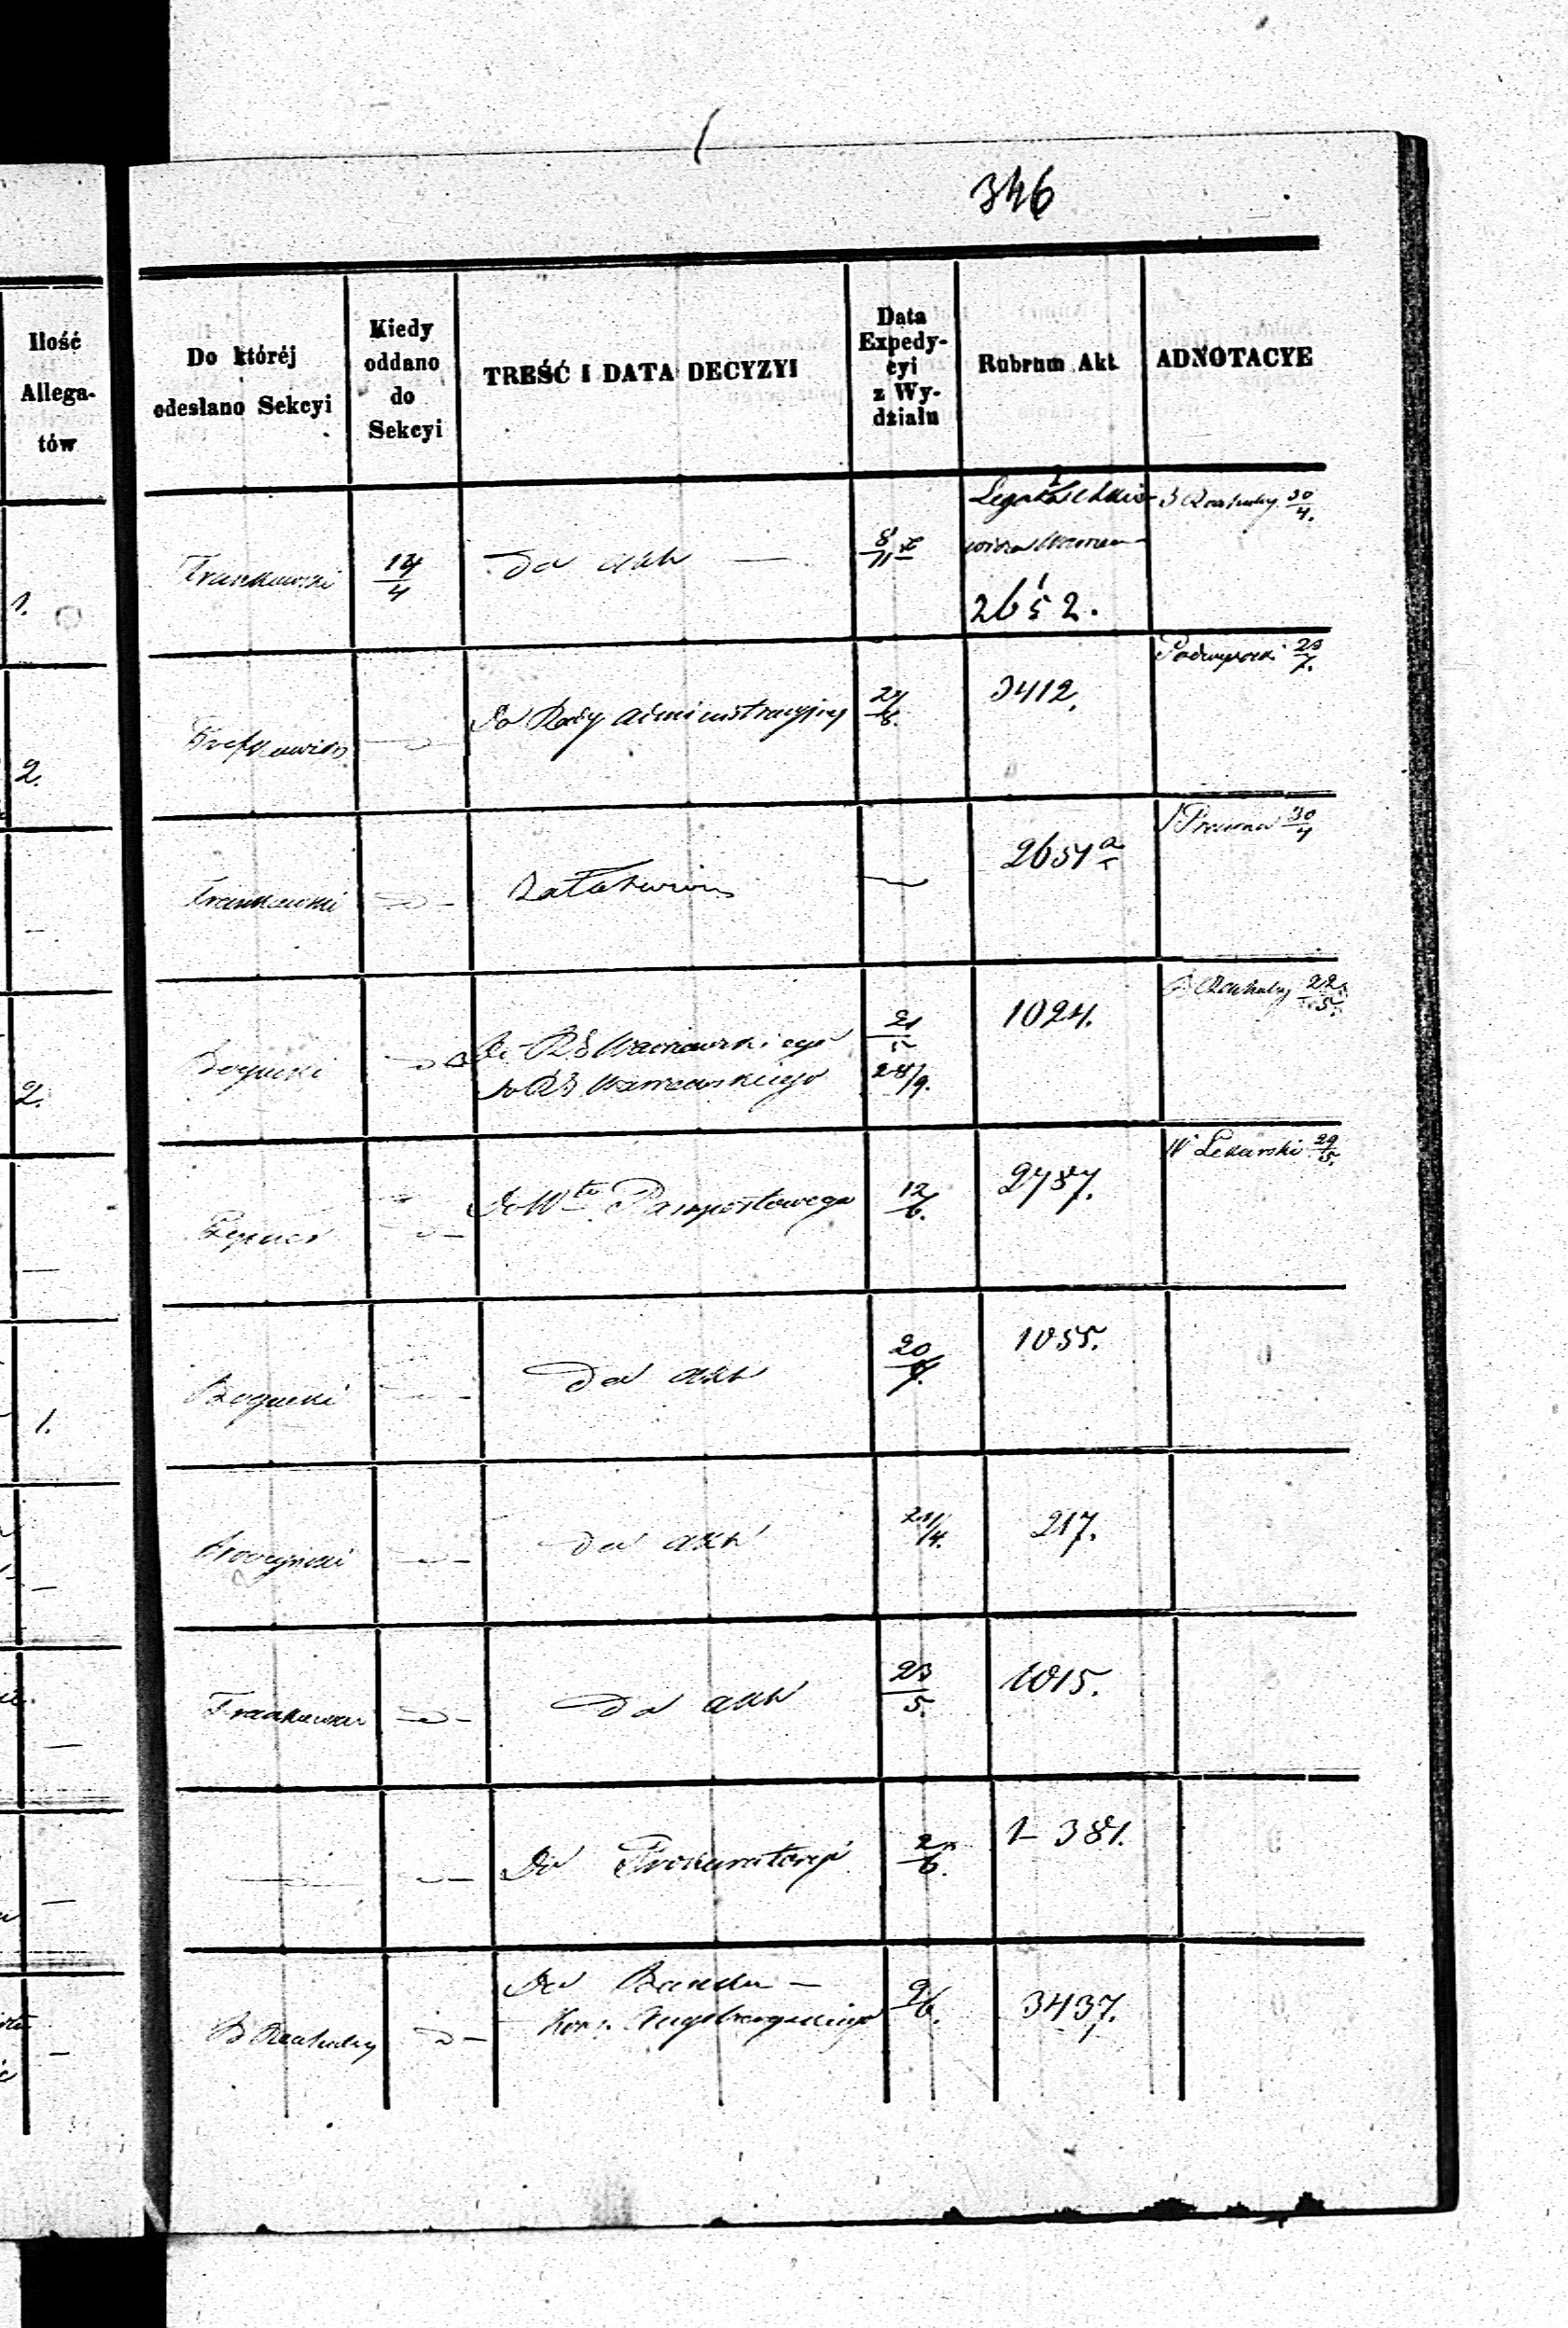 346
Ilość
Allega-
tów
Do któréj
odesłano Sekcyi
Kiedy
oddano
do
Sekcyi
TREŚĆ I DATA DECYZYI
Data
Expedy-
cyi
z Wy-
działu
Rubrum Akt
ADNOTACYE
1.
Frankowski
14/4
do akt —
8/11
2652.
30/4.
2.
Do Rady Administracyjnej
3412.
7.
—
Frankowski
—
2651 a
Prawna 30/4
2.
Bogucki
Do RG Warszawskiego
do RG Warszawskiego
21/5
28/9.
1024.
B Rachuby 22/5.
—
Do Wła Paszportowego
12/6.
2787.
W Lekarski 29/5.
1.
Bogucki
do akt
20/
1055.
—
do akt
/4.
217.
—
Frankowski
do akt
23/5.
1015.
—
—
Do Prokuratoryi
2/6.
1- 381.
—
B Rachuby
Do Banku —
9/6.
3437.